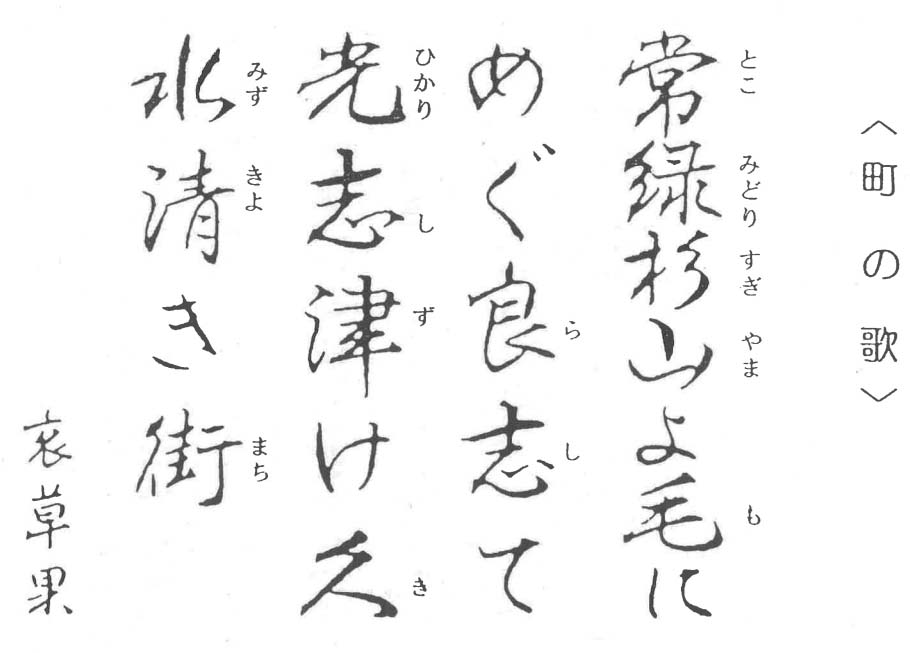 〈町の歌〉
常緑杉山よ毛に
とこ みどり すぎ やま も
めぐ良志て
ら し
光志津け久
ひかり し ず き
水清き街
みず きよ まち
哀草果